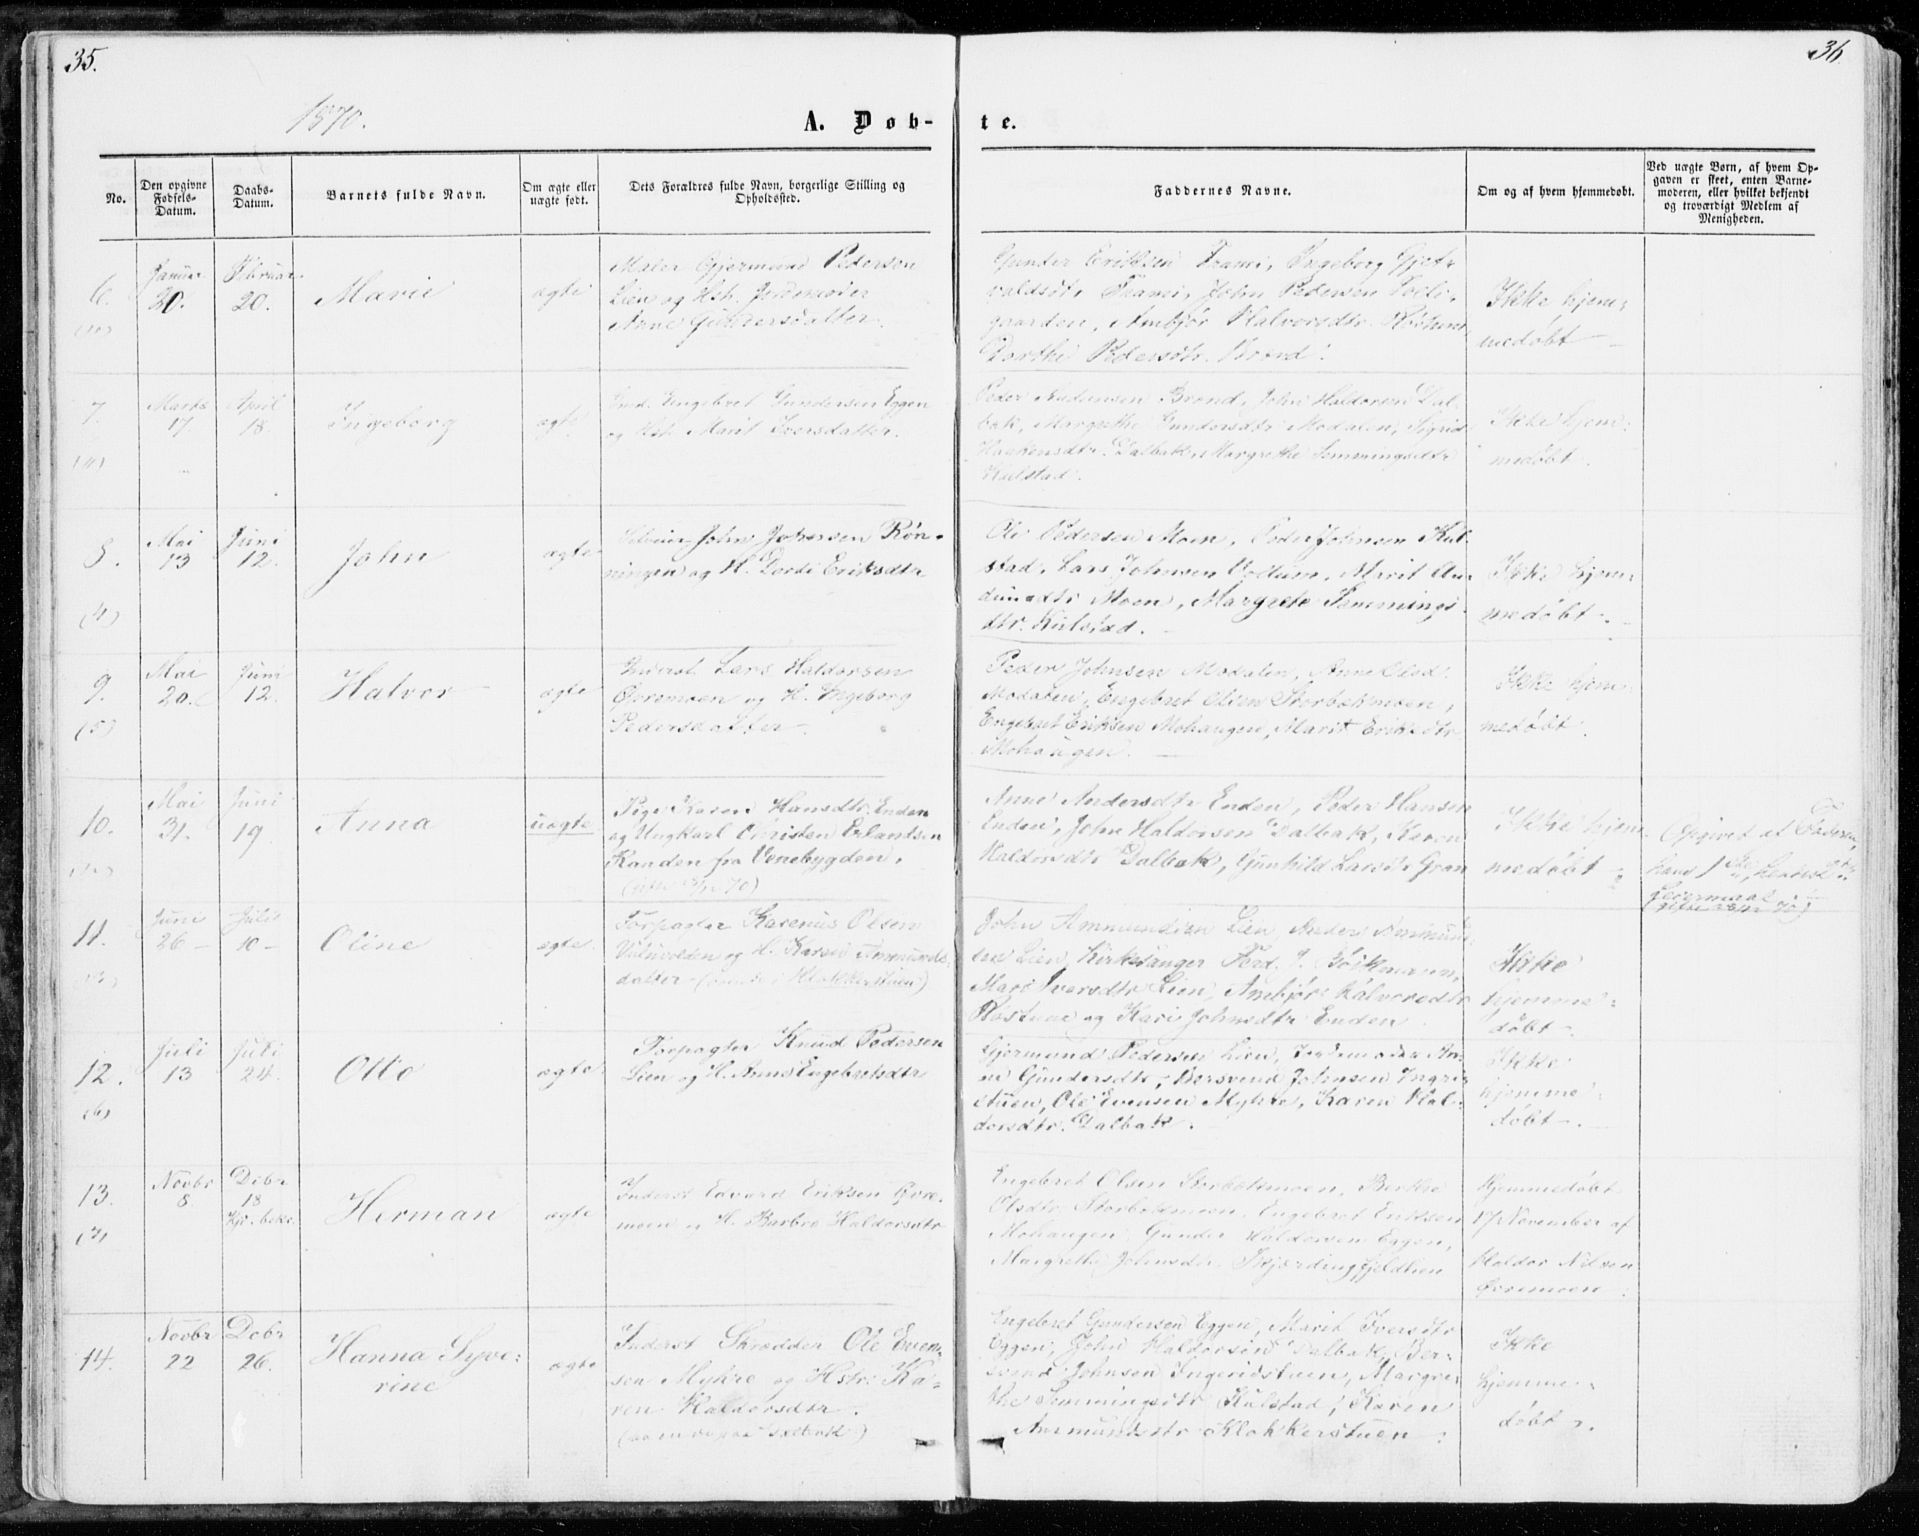 35.
36
1870.
A. Døb-
te.
No.
Den opgivne
Fødsels-
Datum.
Daabs-
Datum.
Barnets fulde Navn.
Om ægte eller
uægte født.
Dets Forældres fulde Navn, borgerlige Stilling og
Opholdssted.
Faddernes Navne.
Om og af hvem hjemmedøbt.
Ved uægte Børn, af hvem Op-
gaven er skeet, enten Barne-
moderen, eller hvilket bekjendt
og troværdigt Medlem af
Menigheden.
6.
Januar
20.
Februar
20.
Marie
ægte
Maler Gjermund Pedersen
Lien og Hst. Jordemoder
Anne Gundersdatter.
Gunder Eriksen Trami, Ingeborg Gjet-
valdsdt. Trami, John Pedersen
gaarden, Ambjør Halvorsdtr.
Dorthe Pedersdtr. Brænd.
Ikke hjem-
medøbt
7.
Marts
17
April
18.
Ingeborg
ægte
Engebret Gundersen Eggen
og Hst. Marit Iversdatter.
Peder Amundsen Brænd, John Haldorsen Dal-
bak, Margrethe Gundersdtr Modalen, Sigrid
Haakensdtr. Dalbak, Margrethe Semmingsdtr
Kulstad.
Ikke hjem-
medøbt.
8.
(4)
Mai
13
Juni
12.
John
ægte
John Johnsen Røn-
ningen og H. Dorti Eriksdtr
Ole Pedersen Moen, Peder Johnsen Kul-
stad, Lars Johnsen Voltum, Marit Am-
dunsdtr Moen, Margrete Semmings-
dtr. Kulstad.
Ikke hjem-
medøbt.
9.
(5)
Mai
20.
Juni
12.
Halvor
ægte
Inderst Lars Haldorsen
Øvremoen og H. Ingeborg
Pedersdatter.
Peder Johnsen Modalen, Anne Olsd.
Modalen, Engebret Olsen Storbækmoen,
Engebret Eriksen Mohaugen, Marit Eriksdtr
Mohaugen.
Ikke hjem-
medøbt.
10.
Mai
31.
Juni
19.
Anna
uægte
Pige Karen Hansdtr. Enden
og Ungkarl Christen Erlandsen
Kanden fra Venebygden.
Anne Andersdtr Enden, Peder Hansen
Enden, John Haldorsen Dalbak, Karen
Haldorsdtr Dalbak, Gunhild Larsdtr Gran
Ikke hjem-
medøbt
Opgivet at Faderen,
hans 1ste, hendes 2det
Leiermaal
11.
Juni
26
Juli
10
Oline
ægte
Forpagter Karenus Olsen
og H. Karen Ammunds-
datter
John Ammundsen Lien, Peder Ammund-
sen Lien, Kirkesanger Ferd. P. Bøckmann,
Mari Iversdtr Lien, Ambjør Halvorsdtr
og Kari Johnsdtr Enden
Ikke
hjemme-
døbt.
12.
(6)
Juli
13
Juli
24.
Otto
ægte
Forpagter Knud Pedersen
Lien og H. Anne Engebretsdtr
Gjermund Pedersen Lien, Jordemoder An-
ne Gundersdtr, Bersvend Johnsen Ingri-
stuen, Ole Evensen Mykre, Karen Hal-
dorsdtr. Dalbak.
Ikke
hjemme-
døbt.
13.
(7)
Novbr
8
Debr
18
Herman
ægte
Inderst Edvard Eriksen Øvre-
moen og H. Barbro Haldorsdtr
Engebret Olsen Storbækmoen, Berthe
Olsdtr. Storbækmoen, Engebret Eriksen
Mohaugen, Gunder Haldorsen Eggen,
Margrethe Johnsdtr.
Hjemmedøbt
17 November af
Haldor Nilsen
Øvremoen.
14.
Novbr
22
Debr
26.
Hanna Syve-
rine
ægte
Inderst Skrædder Ole Even-
sen Mykre og Hstr. Ka-
ren Haldorsdtr.
Engebret Gundersen Eggen, Marit Iversdtr
Eggen, John Haldorsen Dalbak, Ber-
svend Johnsen Ingeridstuen, Margre-
the Semmingsdtr Kulstad, Karen
Ammundsdtr Klokkerstuen.
Ikke
hjemme-
døbt.